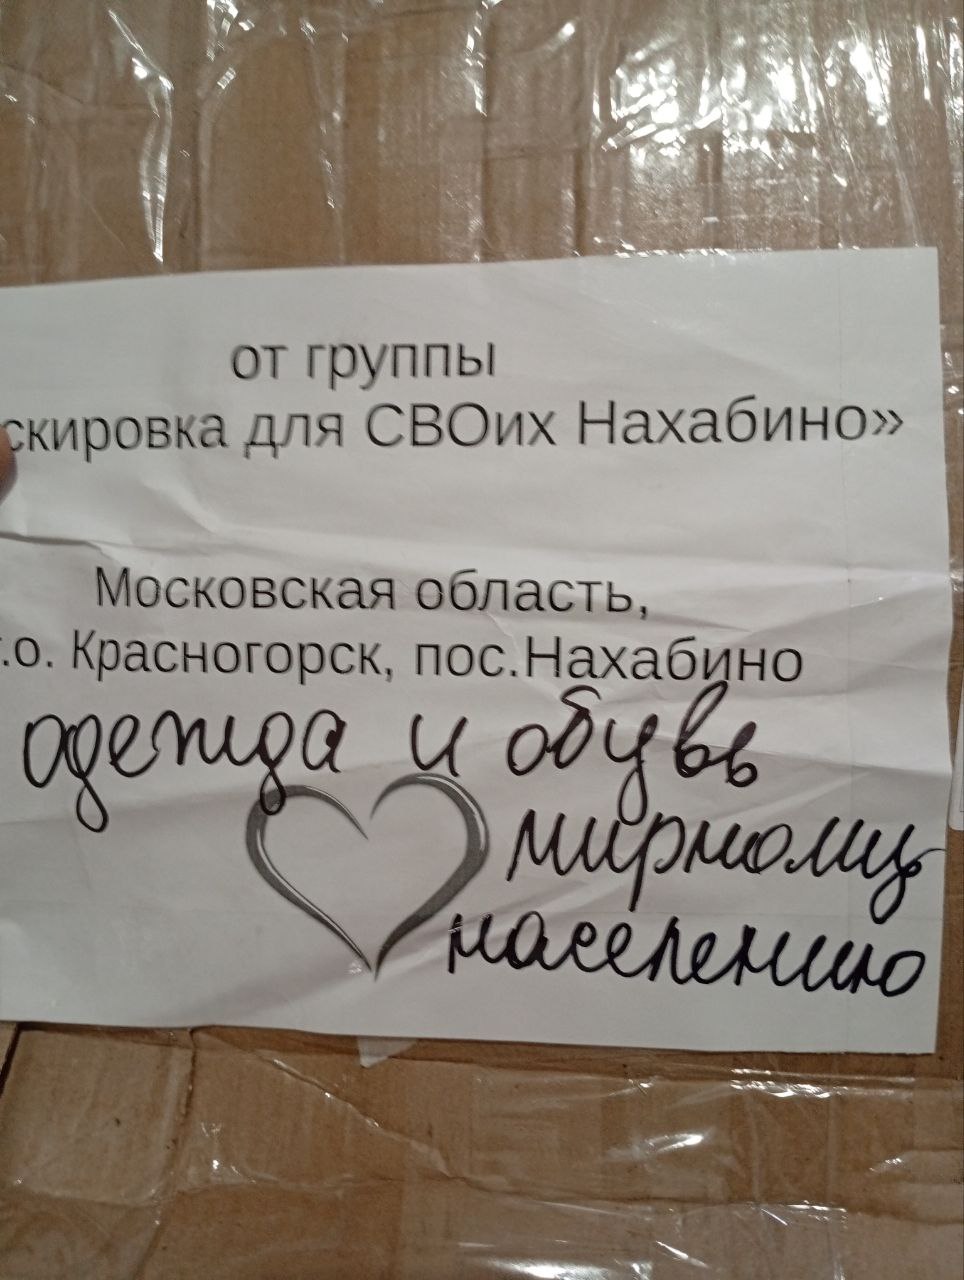 от группы
скировка для СВОих Нахабино»
Московская область,
.о. Красногорск, пос.Нахабино
одежда и обувь
мирному
населению